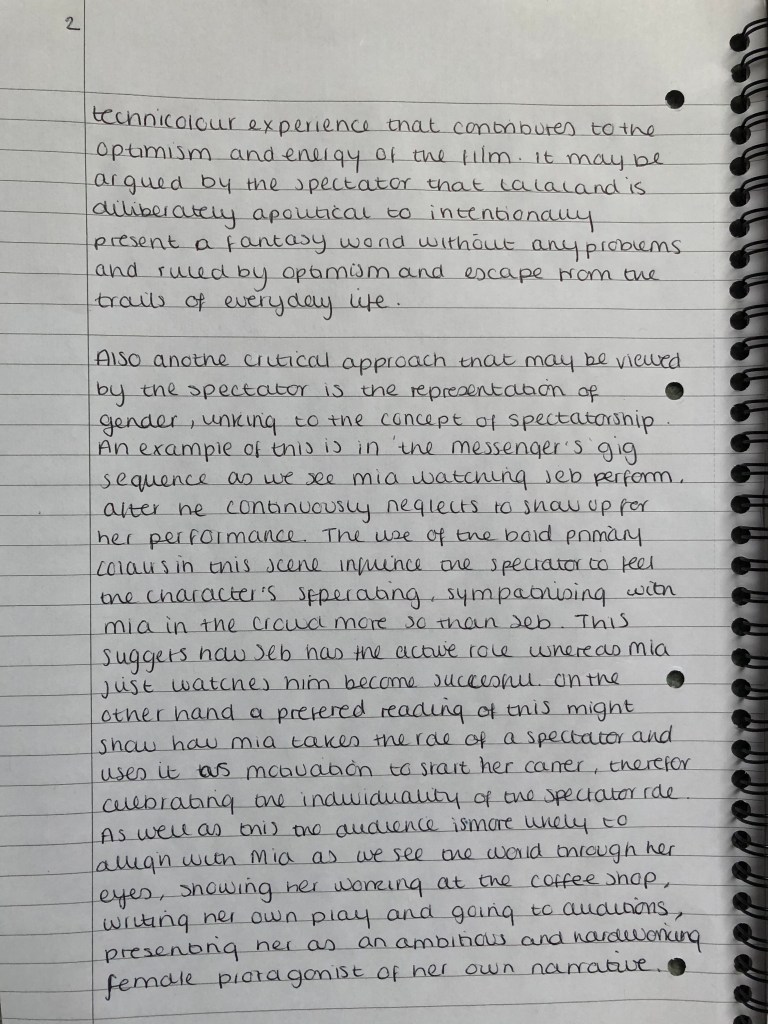 2
technicolour experience that contributes to the
optimism and energy of the film. it may be
argued by the spectator that Lalaland is
diliberately apolitical to intentionally
present a fantasy world without any problems
and ruled by optimism and escape from the
trails of everyday life.
Also anothe critical approach that may be viewed
by the spectator is the representation of
gender, linking to the concept of spectatorship.
An example of this is in 'the messenger's' gig
sequence as we see mia watching seb perform,
after he continuously neglects to show up for
her performance. The use of the bold primary
colours in this scene influince the spectator to feel
the character's spperating, sympathising with
mia in the crowd more so than seb. This
suggers how seb has the active role whereas mia
just watches him become succesful. on the
other hand a prefered reading of this might
show how mia takes the role of a spectator and
uses it as motivation to start her carrer, therefor
celebrating the individuality of the spectator role.
As well as this the audience is more likely to
allign with Mia as we see the world through her
eyes, showing her working at the coffee shop,
writing her own play and going to auditions,
presenting her as an ambitious and hardworking
female protagonist of her own narrative.